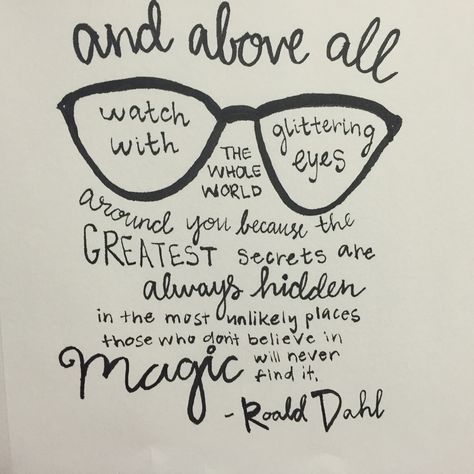 and above all
watch with
glittering eyes
THE WHOLE WORLD
around you because the
GREATEST secrets are
always hidden
in the most unlikely places
those who don't believe in
Magic will never find it.
- Roald Dahl